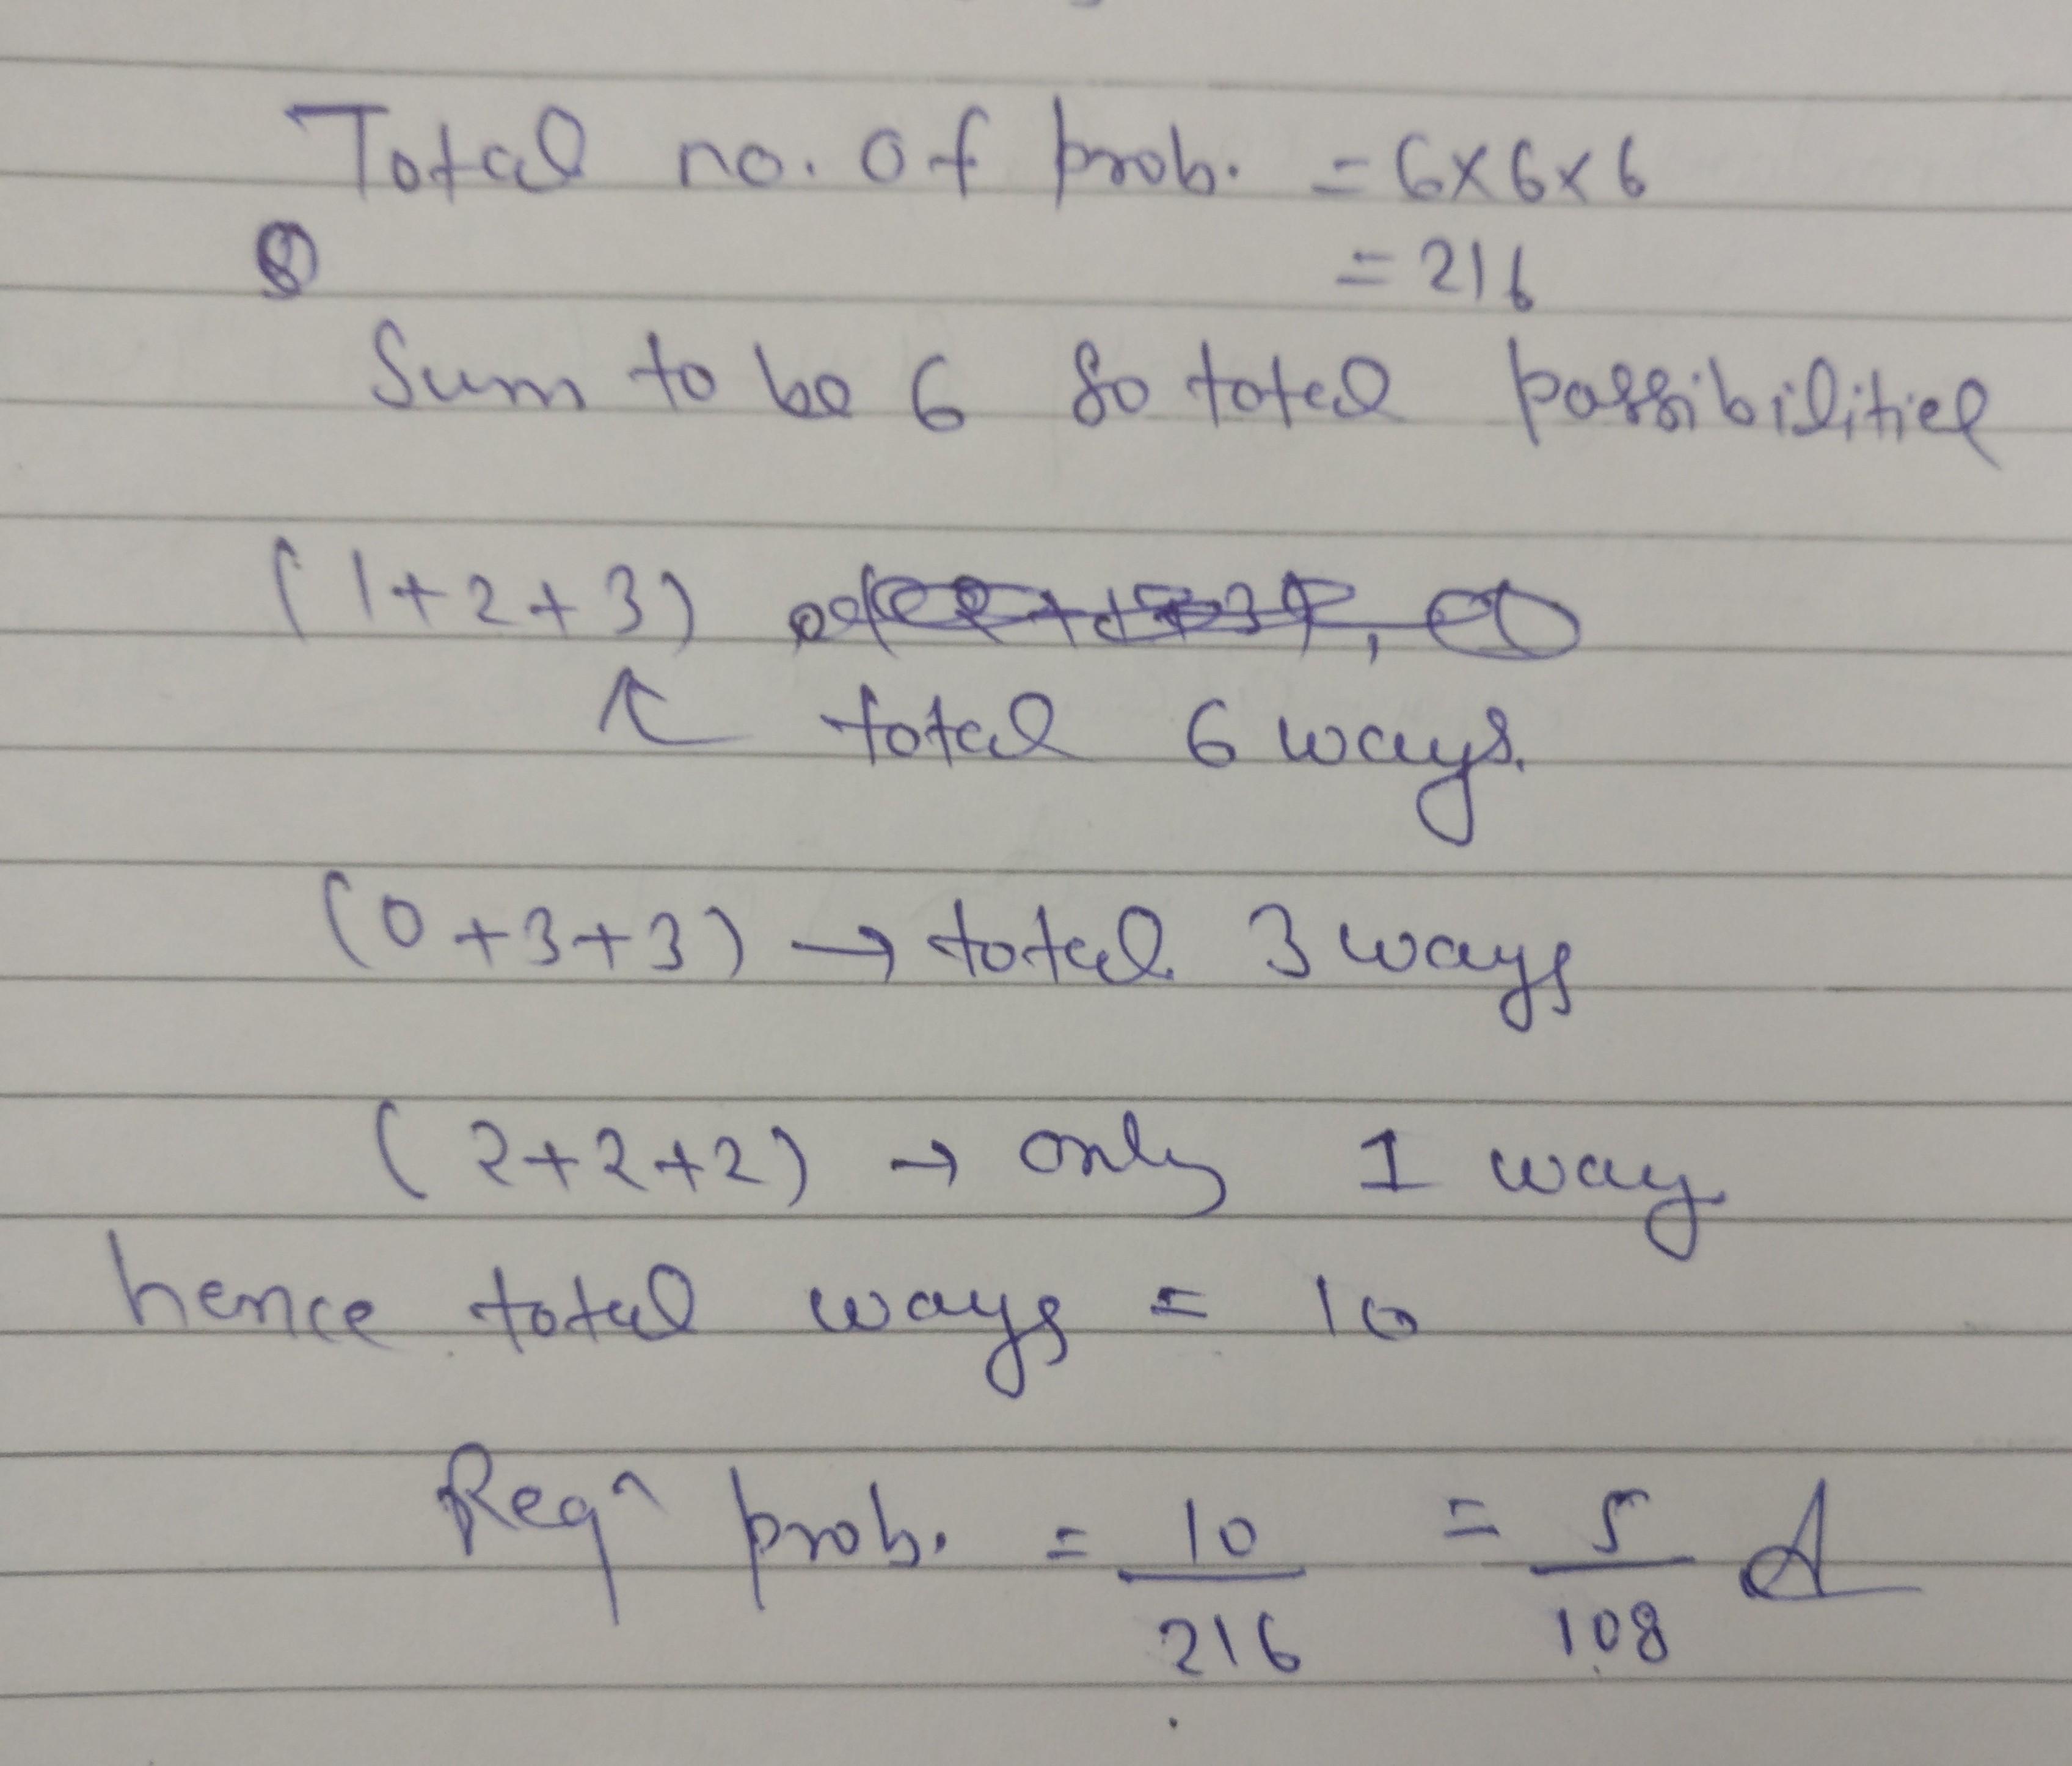 Total no. of prob. = 6×6×6
= 216
Sum to be 6 so total possibilities
(1+2+3)
↖ total 6 ways.
(0+3+3) → total 3 ways
(2+2+2) → only 1 way
hence total ways = 10
Reqⁿ prob. = 10/216 = 5/108 A